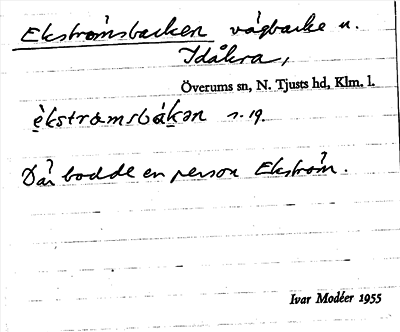 Ekströmsbacken vägbacke n.
Idåkra,
Överums sn, N. Tjusts hd, Klm. l.
èkstrømsbákən s. 19.
Där bodde en person Ekström.
Ivar Modéer 1955